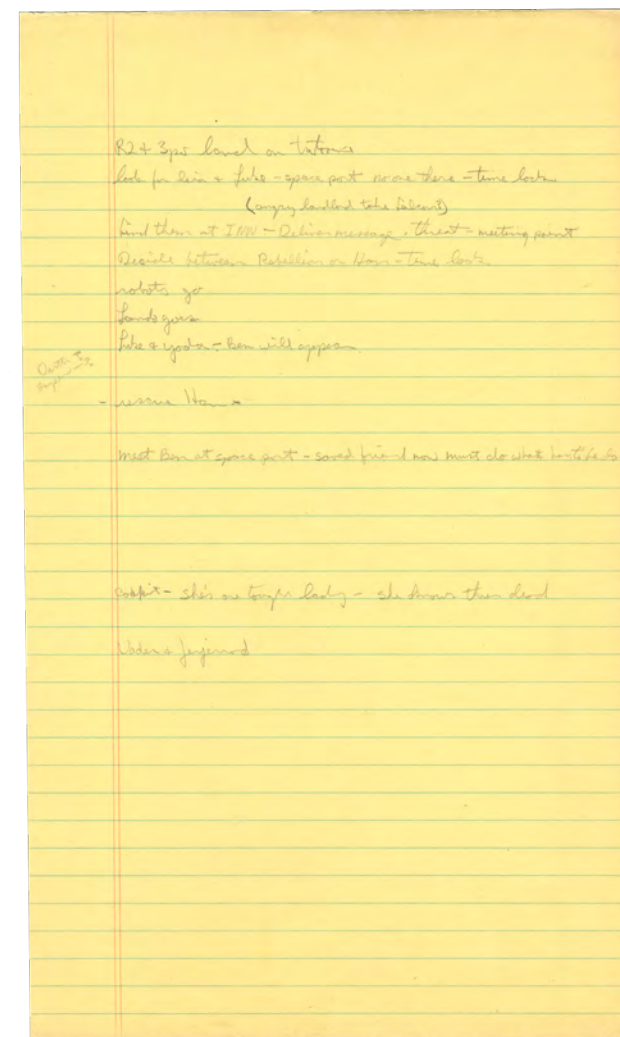 R2 & 3po land on
look for leia & luke - space port no one there - time lock
(angry landlord take falcon?)
find them at INN - Deliver message, threat - meeting point
Decide between Rebellion or Han - Time lock
robots go
Lando goes
Luke & yoda - Ben will appear
- rescue Han -
meet Ben at space port - saved friend now must do what
cockpit - she's one tough lady - she knows then dead
Vader & Jerjerrod